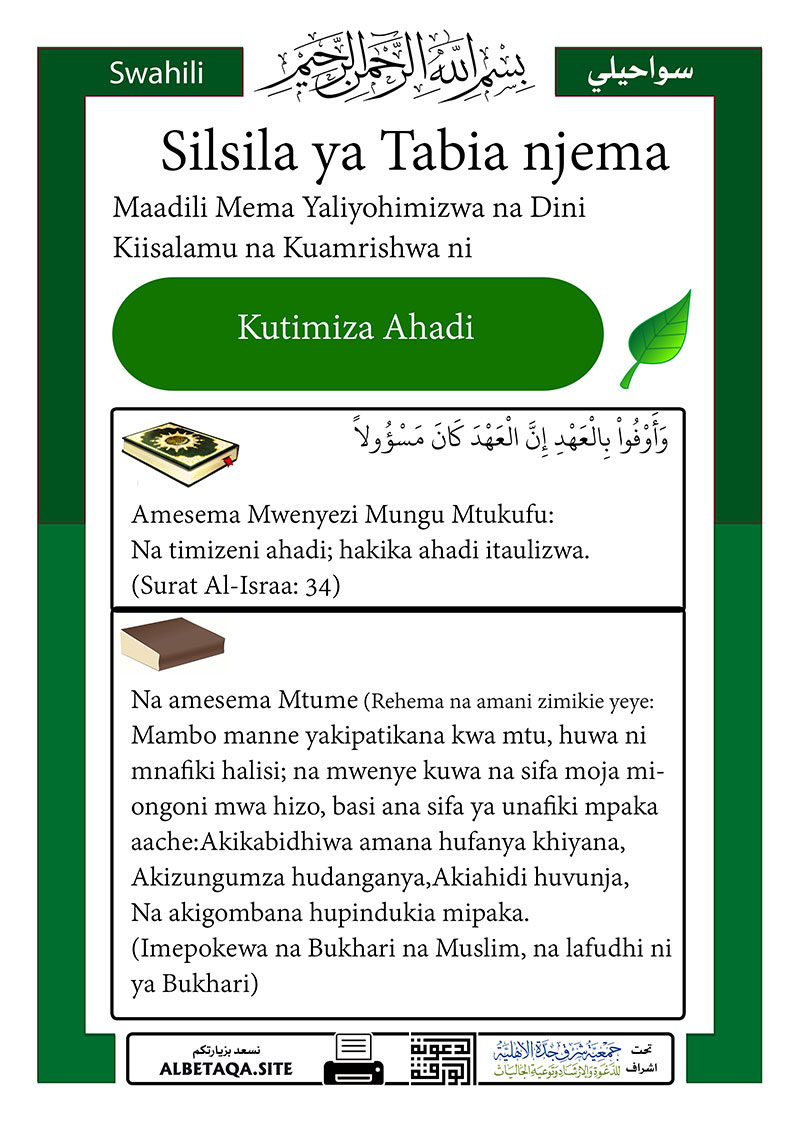 Swahili
بسم الله الرحمن الرحيم
سواحيلي
Silsila ya Tabia njema
Maadili Mema Yaliyohimizwa na Dini
Kiisalamu na Kuamrishwa ni
Kutimiza Ahadi
وَأَوْفُواْ بِالْعَهْدِ إِنَّ الْعَهْدَ كَانَ مَسْؤُولاً
Amesema Mwenyezi Mungu Mtukufu:
Na timizeni ahadi; hakika ahadi itaulizwa.
(Surat Al-Israa: 34)
Na amesema Mtume (Rehema na amani zimikie yeye:
Mambo manne yakipatikana kwa mtu, huwa ni
mnafiki halisi; na mwenye kuwa na sifa moja mi-
ongoni mwa hizo, basi ana sifa ya unafiki mpaka
aache:Akikabidhiwa amana hufanya khiyana,
Akizungumza hudanganya,Akiahidi huvunja,
Na akigombana hupindukia mipaka.
(Imepokewa na Bukhari na Muslim, na lafudhi ni
ya Bukhari)
نسعد بزيارتكم
ALBETAQA.SITE
الدعوية
الورقية
تحت
اشراف
جمعية شرق جدة الأهلية
للدعوة والإرشاد وتوعية الجاليات